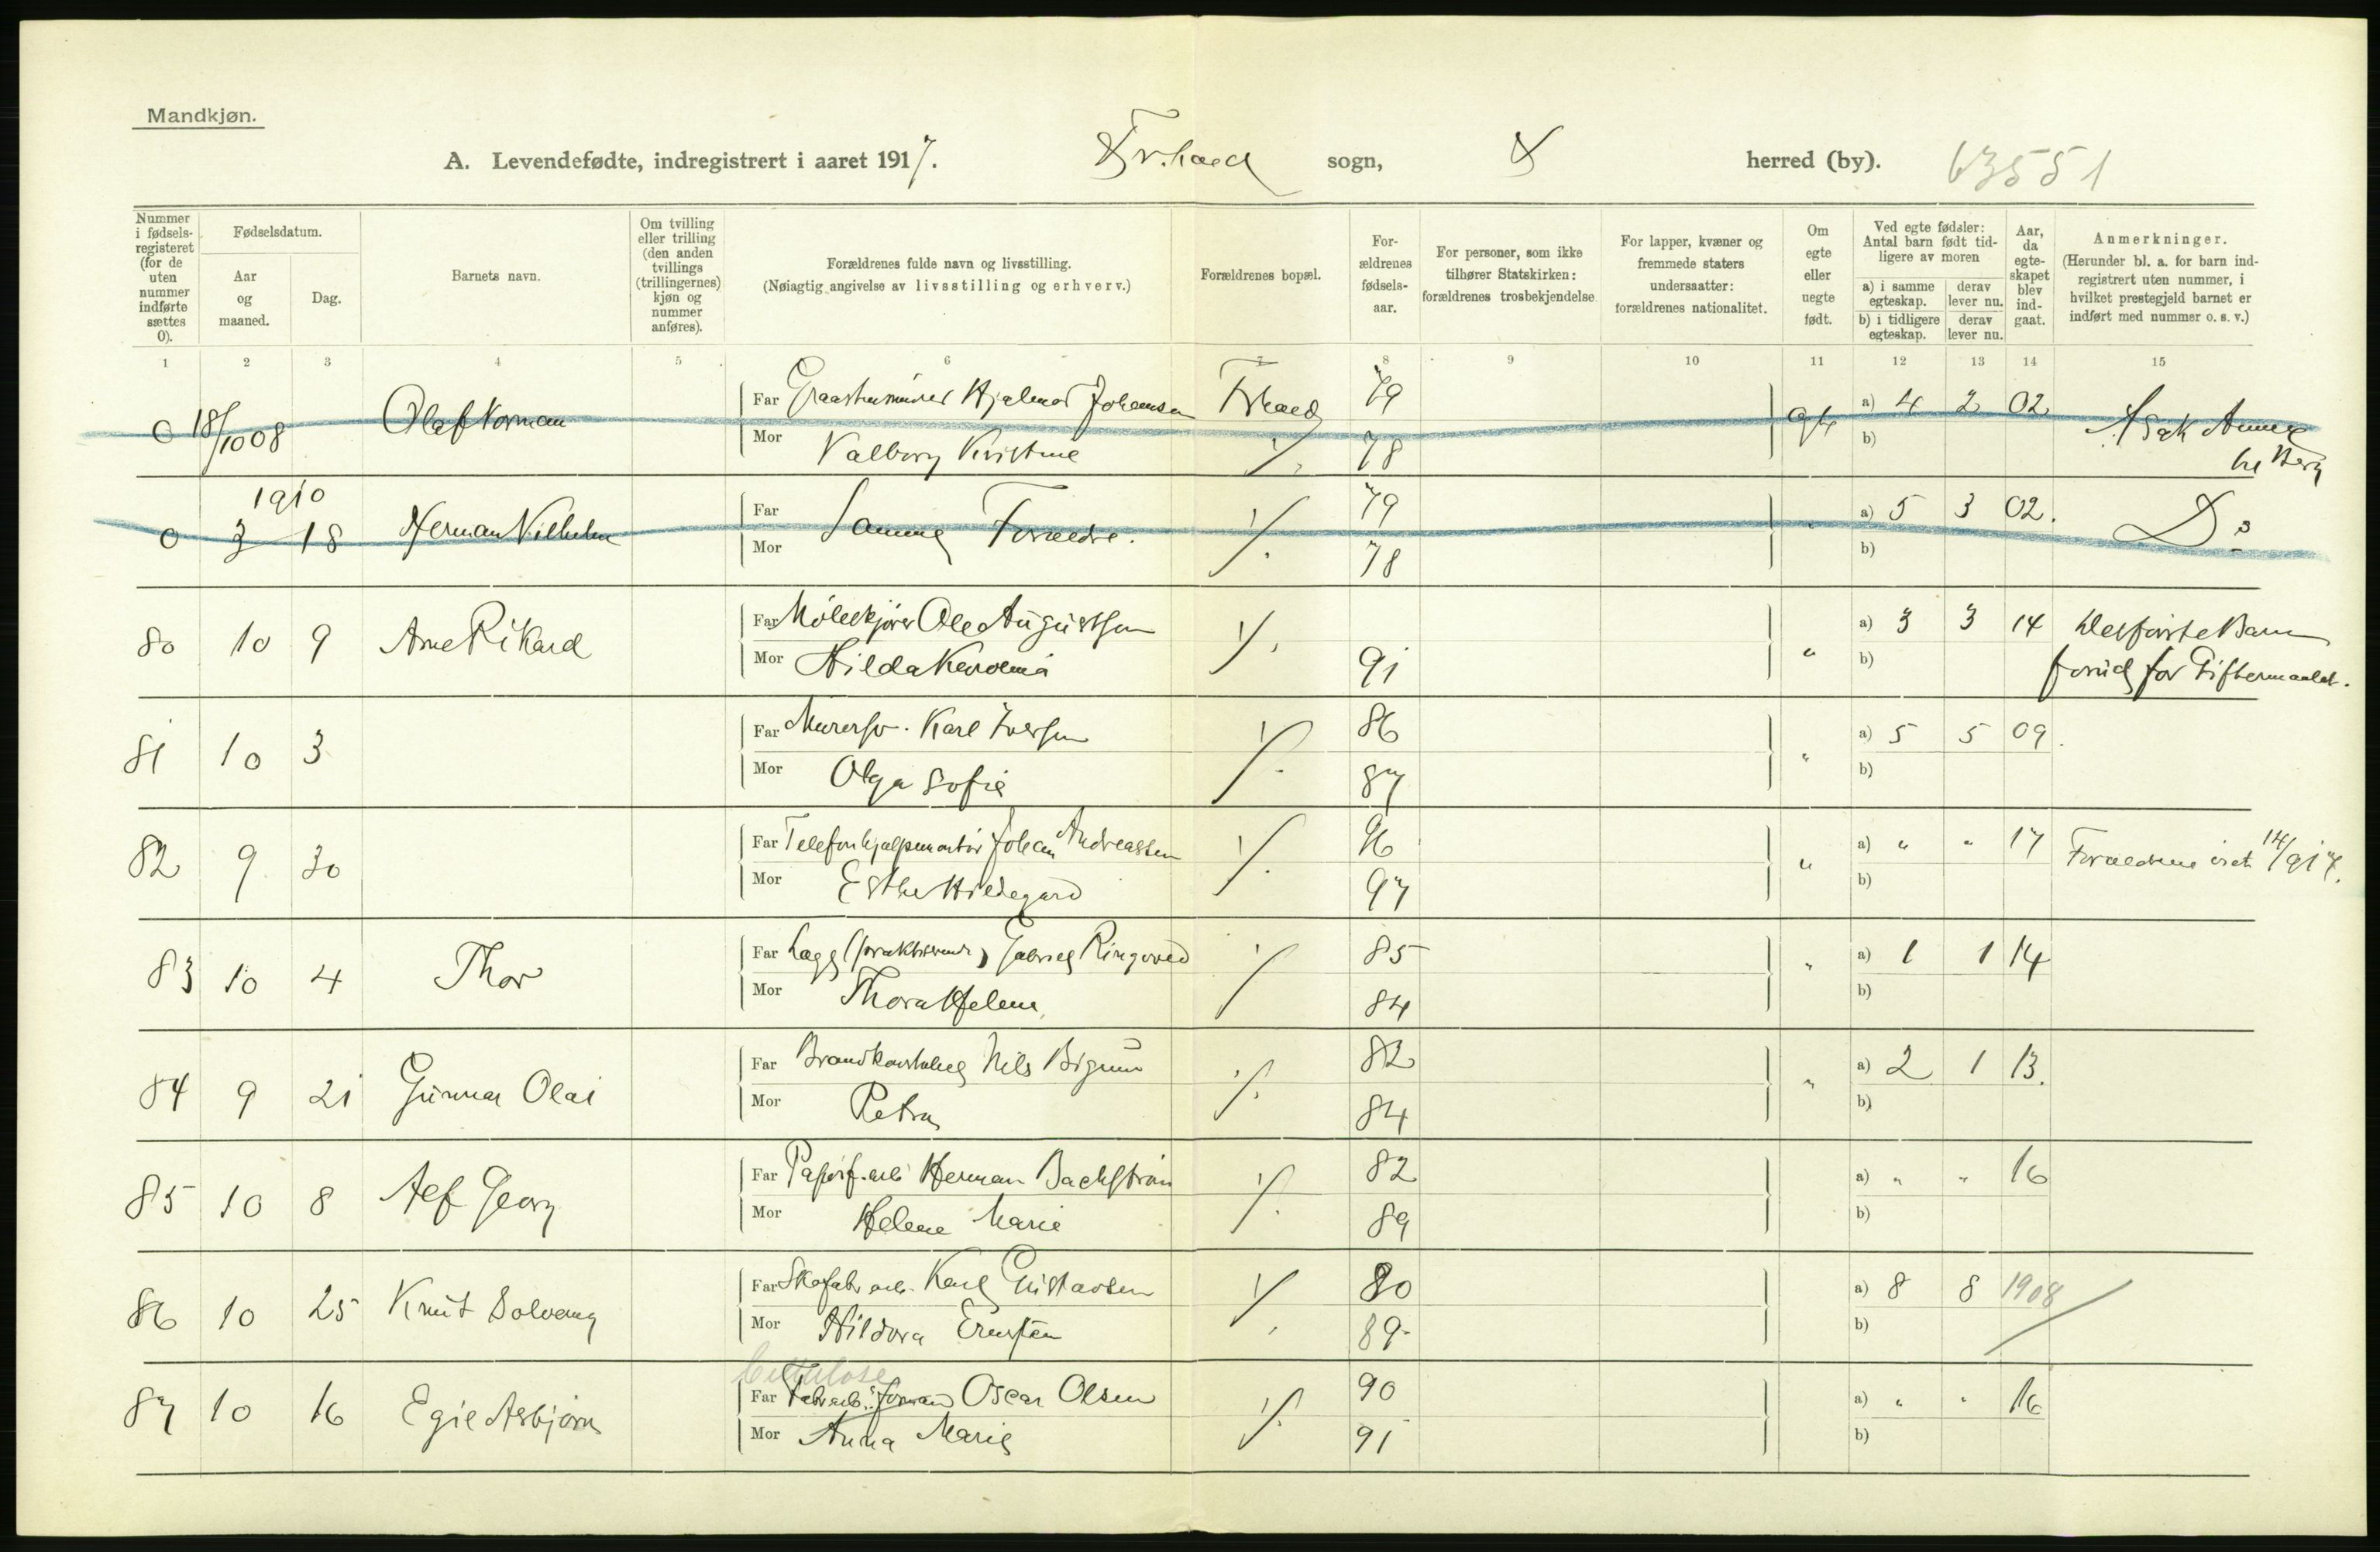 Mandkjøn.
A. Levendefødte, indregistrert i aaret 1917. Fr.hald sogn, herred (by). 63551
Nummer i fødsels-registeret (for de uten nummer indførte sættes 0).
Fødselsdatum.
Aar og maaned.
Dag.
Barnets navn.
Om tvilling eller trilling (den anden tvillings (trillingernes) kjøn og nummer anføres).
Forældrenes fulde navn og livsstilling.
(Nøiagtig angivelse av livsstilling og erhverv.)
Forældrenes bopæl.
For-ældrenes fødsels-aar.
For personer, som ikke tilhører Statskirken: forældrenes trosbekjendelse.
For lapper, kvæner og fremmede staters undersaatter: forældrenes nationalitet.
Om egte eller uegte født.
Ved egte fødsler: Antal barn født tid-ligere av moren
a) i samme egteskap. derav lever nu.
b) i tidligere egteskap. derav lever nu.
Aar, da egte-skapet blev ind-gaat.
Anmerkninger.
(Herunder bl. a. for barn ind-registrert uten nummer, i hvilket prestegjeld barnet er indført med nummer o. s. v.)
1 2 3 4 5 6 7 8 9 10 11 12 13 14 15
0 18/10 08 Olaf Norman Far Hjalmar Johansen 79 a) 4 2 02
Mor Valborg Kristine ./. 78 b)
1910
0 3 18 Herman Vilhelm Far Samme Forældre. ./. 79 a) 5 3 02. Do
Mor 78 b)
80 10 9 Arne Rikard Far Ole Augustsen ./. " a) 3 3 14 Det første Barn
Mor Hilda Karolina 91 b) forud for Giftermaalet.
81 10 3 Far Murersv. Karl Iversen ./. 86 " a) 5 5 09.
Mor Olga Sofie 87 b)
82 9 30 Far Telefonhjælpemontør Johan Andreassen ./. 96 " a) " " 17 Forældrene viet 14/9 17.
Mor Esther Hildegard 97 b)
83 10 4 Thor Far Læge (praktiserende) Gabriel Ringvold ./. 85 " a) 1 1 14
Mor Thora Helene 84 b)
84 9 21 Gunnar Olai Far Brandkonstabel Nils ./. 82 " a) 2 1 13.
Mor Petra 84 b)
85 10 8 Alf Georg Far Papirf.arb. Herman Backstrøm ./. 82 a) " " 16
Mor Helene Marie 89 b)
86 10 25 Knut Solvang Far Skofabr.arb. Karl Gustavsen ./. 80 a) 8 8 1908
Mor Hildora 89 b)
Cellulose
87 10 16 Egil Asbjørn Far Fabr.arb. formand Oscar Olsen ./. 90 a) " " 16
Mor Anna Marie 91 b)